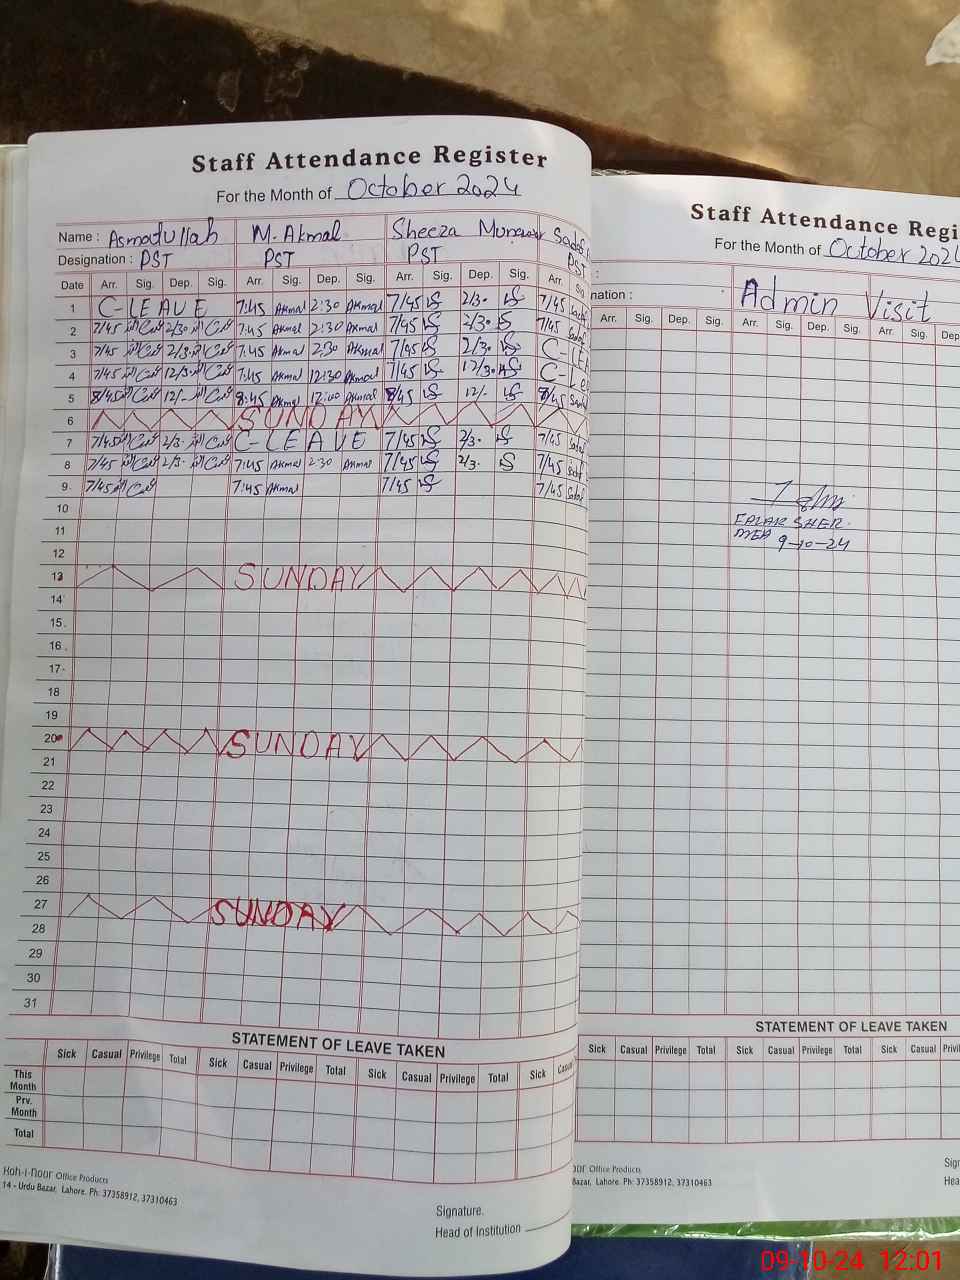 Staff Attendance Register
For the Month of October 2024
Name : Asmatullah M. Akmal Sheeza Munawar
Designation : PST PST PST PST
Date Arr. Sig. Dep. Sig. Arr. Sig. Dep. Sig. Arr. Sig. Dep. Sig. Arr.
1 C-LEAVE 7:45 Akmal 2:30 Akmal 7/45 2/30 7/45
2 7/45 2/30 7:45 Akmal 2:30 Akmal 7/45 2/30 7/45
3 7/45 2/30 7:45 Akmal 2:30 Akmal 7/45 2/30
4 7/45 12/30 7:45 Akmal 12:30 Akmal 7/45 12/30
5 8/45 12/- 8:45 Akmal 12:00 Akmal 8/45 12/-
6 SUNDAY
7 7/45 2/30 C-LEAVE 7/45 2/30 7/45
8 7/45 2/30 7:45 Akmal 2:30 Akmal 7/45 2/30 7/45
9. 7/45 7:45 Akmal 7/45 7/45
10
11
12
13 SUNDAY
14
15.
16.
17.
18
19
20 SUNDAY
21
22
23
24
25
26
27 SUNDAY
28
29
30
31
STATEMENT OF LEAVE TAKEN
Sick Casual Privilege Total Sick Casual Privilege Total Sick Casual Privilege Total Sick
This Month
Prv. Month
Total
Koh-i-noor Office Products
14 - Urdu Bazar, Lahore. Ph: 37358912, 37310463
Signature.
Head of Institution
Staff Attendance Regi
For the Month of October 202
nation : Admin Visit
Arr. Sig. Dep. Sig. Arr. Sig. Dep. Sig. Arr. Sig. Dep
SHER
9-10-24
STATEMENT OF LEAVE TAKEN
Sick Casual Privilege Total Sick Casual Privilege Total Sick Casual
oor Office Products
Bazar, Lahore. Ph: 37358912, 37310463
Sig
Hea
09-10-24 12:01